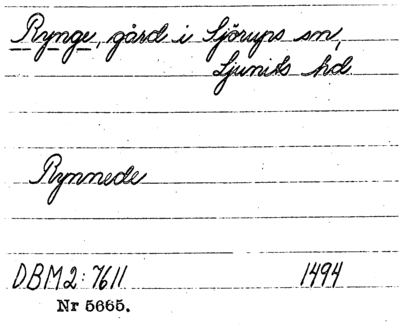 Rynge, gård i Sjörups sn,
Ljunits hd
Rynnede
DBM2:7611 1494
Nr 5665.